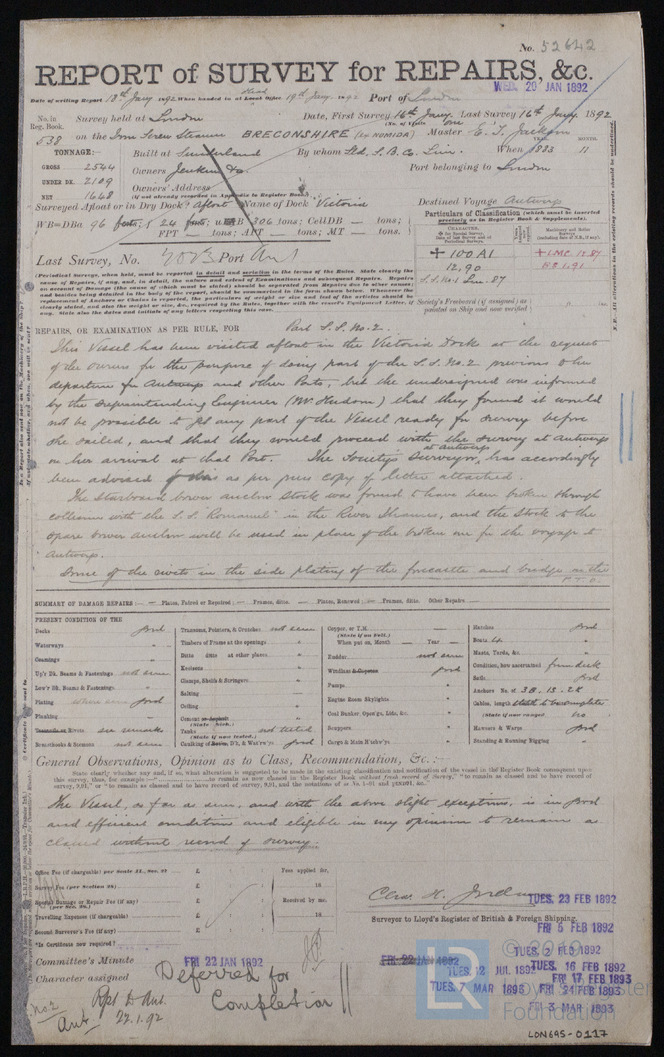 No. 52642
REPORT of SURVEY for REPAIRS, &c.
WED. 20 JAN 1892
Date of writing Report 18th Jany 1892. When handed in at Head Office 19th Jany 1892 Port of London
No. in Reg. Book. Survey held at London Date, First Survey 16th Jany. Last Survey 16th Jany. 1892
(No. of Visits one)
530 on the Iron Screw Steamer BRECONSHIRE (ex NUMIDA) Master E. T. Jackson
TONNAGE: Built at Sunderland By whom Sld. S. B. Co. Lim. When 1883 11
YEAR. MONTH.
GROSS 2544
Owners Jenkins & Co. Port belonging to London
UNDER DK. 2109
Owners' Address
NET 1648
(If not already recorded in Appendix to Register Book.)
Surveyed Afloat or in Dry Dock? Afloat Name of Dock Victoria Destined Voyage Antwerp
WB=DBa 96 feet; f 24 feet; 306 tons; CellDB — tons;
FPT — tons; APT — tons; MT — tons.
Particulars of Classification (which must be inserted precisely as in Register Book & Supplements).
Last Survey, No. Port Ant
100 A1
12,90
S.S. No 1 Lon. 87
+ LMC 12.87
B.S. 1.91
(Periodical Surveys, when held, must be reported in detail and seriatim in the terms of the Rules.
Society's Freeboard (if assigned) as painted on Ship and now verified
REPAIRS, OR EXAMINATION AS PER RULE, FOR Part S.S. No. 2.
This Vessel has been visited afloat in the Victoria Dock at the request
of the owners for the purpose of doing part of the S.S. No. 2 previous to her
departure for Antwerp and other Ports, but the undersigned was informed
by the Superintending Engineer (Mr Hudson) that they found it would
not be possible to get any part of the Vessel ready for survey before
she sailed, and that they would proceed with the survey at Antwerp
on her arrival at that Port. The Society's Surveyor, at Antwerp has accordingly
been advised of this as per press copy of letter attached.
The Starboard bower anchor stock was found to have been broken through
collision with the S.S. "Romanel" in the River Thames, and the stock to the
spare bower anchor will be used in place of the broken one for the voyage to
Antwerp.
Some of the rivets in the side plating of the forecastle and bridge in the
P.T.O.
SUMMARY OF DAMAGE REPAIRS: — Plates, Faired or Repaired; — Frames, ditto. — Plates, Renewed; — Frames, ditto. Other Repairs —
PRESENT CONDITION OF THE
Decks good
Waterways "
Coamings "
Up'r Dk. Beams & Fastenings not seen
Low'r Dk. Beams & Fastenings "
Plating where seen good
Planking
Treenails or Rivets see remarks
Breasthooks & Stemson not seen
Transoms, Pointers, & Crutches not seen
Timbers of Frame at the openings "
Ditto ditto at other places "
Keelsons "
Clamps, Shelfs & Stringers "
Salting
Ceiling "
Cement or Asphalt
(State which.)
Tanks not tested
(State if now tested.)
Caulking of D'k, & Wat'rw'ys good
Copper, or Y.M.
(State if on Felt.)
When put on, Month — Year —
Rudder not seen
Windlass & Capstan good
Pumps "
Engine Room Skylights "
Coal Bunker, Open'gs, Lids, &c. "
Scuppers "
Cargo & Main H'tchw'ys "
Hatches good
Boats
Masts, Yards, &c. "
Condition, how ascertained from deck
Sails good
Anchors No. of 3B. 1S. 2K
Cables, length stated to be complete
(State if now ranged) No
Hawsers & Warps good
Standing & Running Rigging "
General Observations, Opinion as to Class, Recommendation, &c.:—
The Vessel, as far as seen, and with the above slight exceptions, is in good
and efficient condition and eligible in my opinion to remain as
classed without record of survey.
Office Fee (if chargeable) per Scale II., Sec. 27 £ Fees applied for,
Survey Fee (per Section 28) £ 18
Special Damage or Repair Fee (if any) £ Received by me,
(per Sec. 28.)
Travelling Expenses (if chargeable) £ 18
Second Surveyor's Fee (if any) £
*Is Certificate now required?
Surveyor to Lloyd's Register of British & Foreign Shipping.
TUES. 23 FEB 1892
FRI 5 FEB 1892
Committee's Minute FRI 22 JAN 1892
FRI. 22 JAN 1892
TUES. 2 FEB 1892
Character assigned Deferred for
Completion
TUES. 12 JUL 1892
TUES. 16 FEB 1892
FRI 17 FEB 1893
TUES. 7 MAR 1893
FRI 24 FEB 1893
FRI 3 MAR 1893
No 2
Ant
Rpt D. Ant.
22.1.92
LR
© 2019
Foundation
LON695-0117